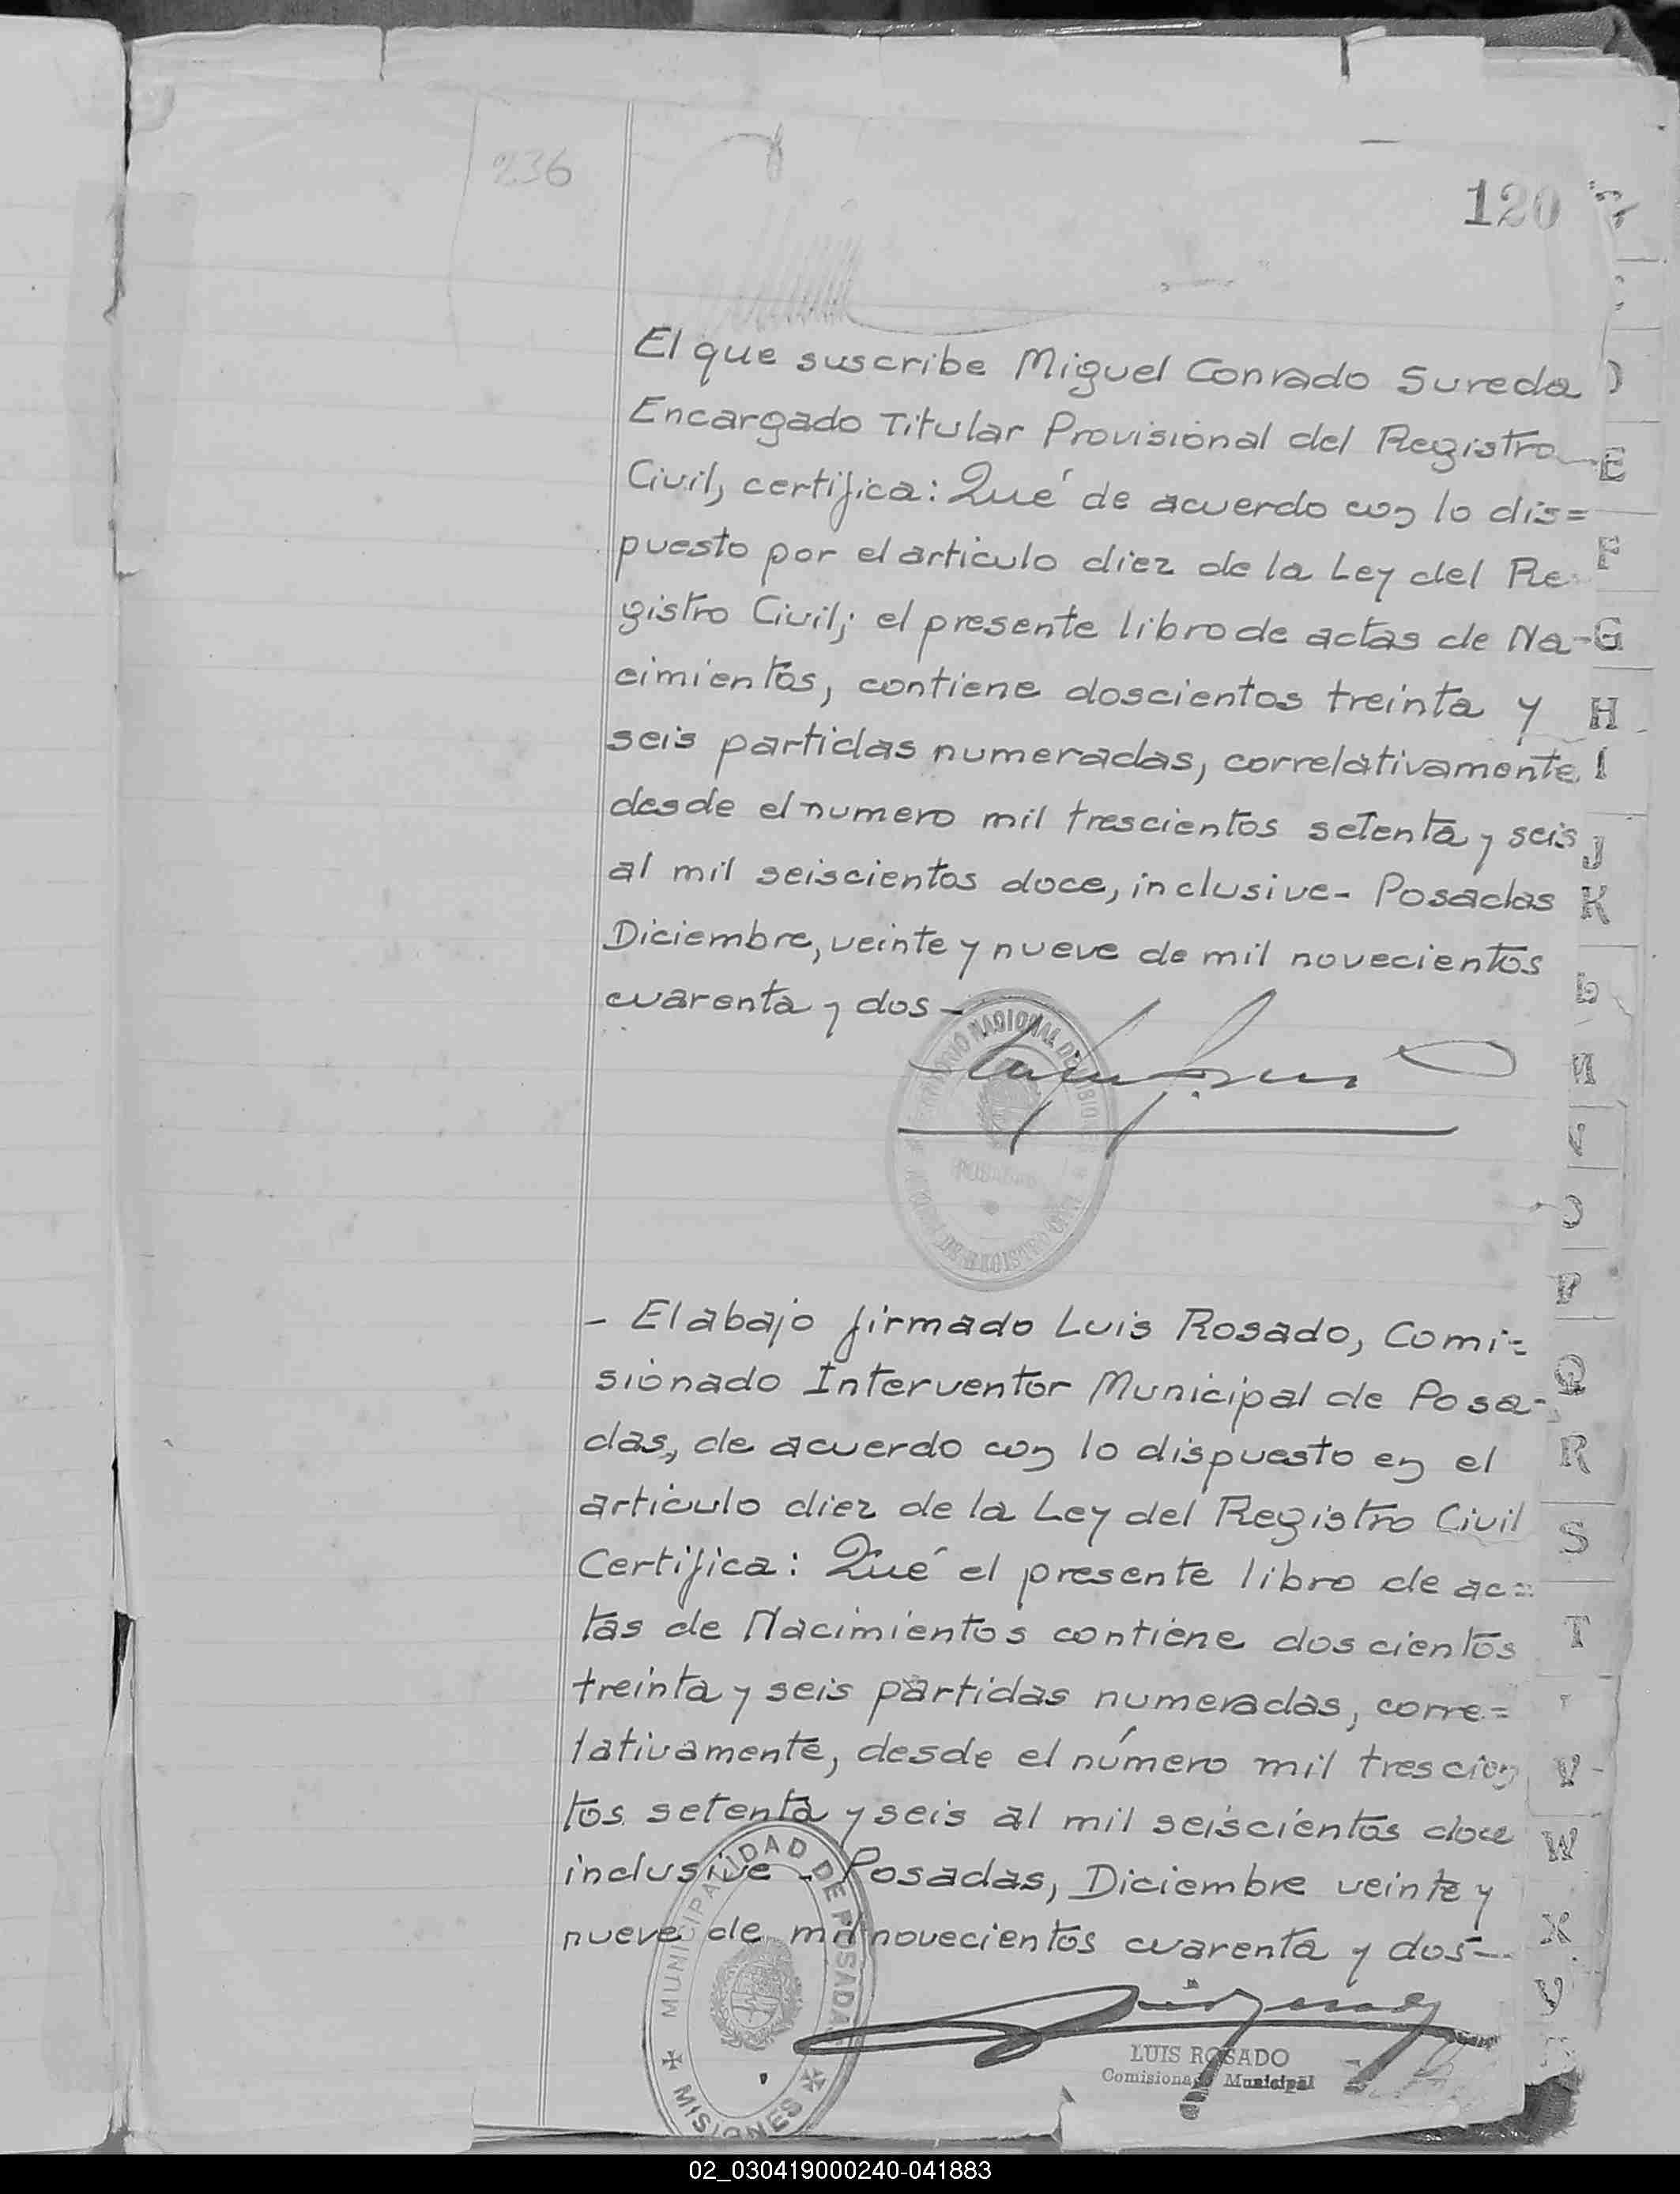 236
120
El que suscribe Miguel Conrado Sureda
Encargado Titular Provisional del Registro
Civil, certifica: Qué de acuerdo con lo dis=
puesto por el articulo diez de la Ley del Re
gistro Civil; el presente libro de actas de Na-
cimientos, contiene doscientos treinta y
seis partidas numeradas, correlativamente
desde el numero mil trescientos setenta y seis
al mil seiscientos doce, inclusive- Posadas
Diciembre, veinte y nueve de mil novecientos
cuarenta y dos-
- El abajo firmado Luis Rosado, Comi=
sionado Interventor Municipal de Posa-
das, de acuerdo con lo dispuesto en el
articulo diez de la Ley del Registro Civil
Certifica: Qué el presente libro de ac=
tas de Nacimientos contiene doscientos
treinta y seis partidas numeradas, corre=
lativamente, desde el número mil trescien
tos setenta y seis al mil seiscientos doce
inclusive - Posadas, Diciembre veinte y
nueve de mil novecientos cuarenta y dos-
MUNICIPALIDAD DE POSADAS
MISIONES
LUIS ROSADO
Comisionado Municipal
E
F
G
H
I
J
K
Q
R
S
T
V
W
X
02_030419000240-041883